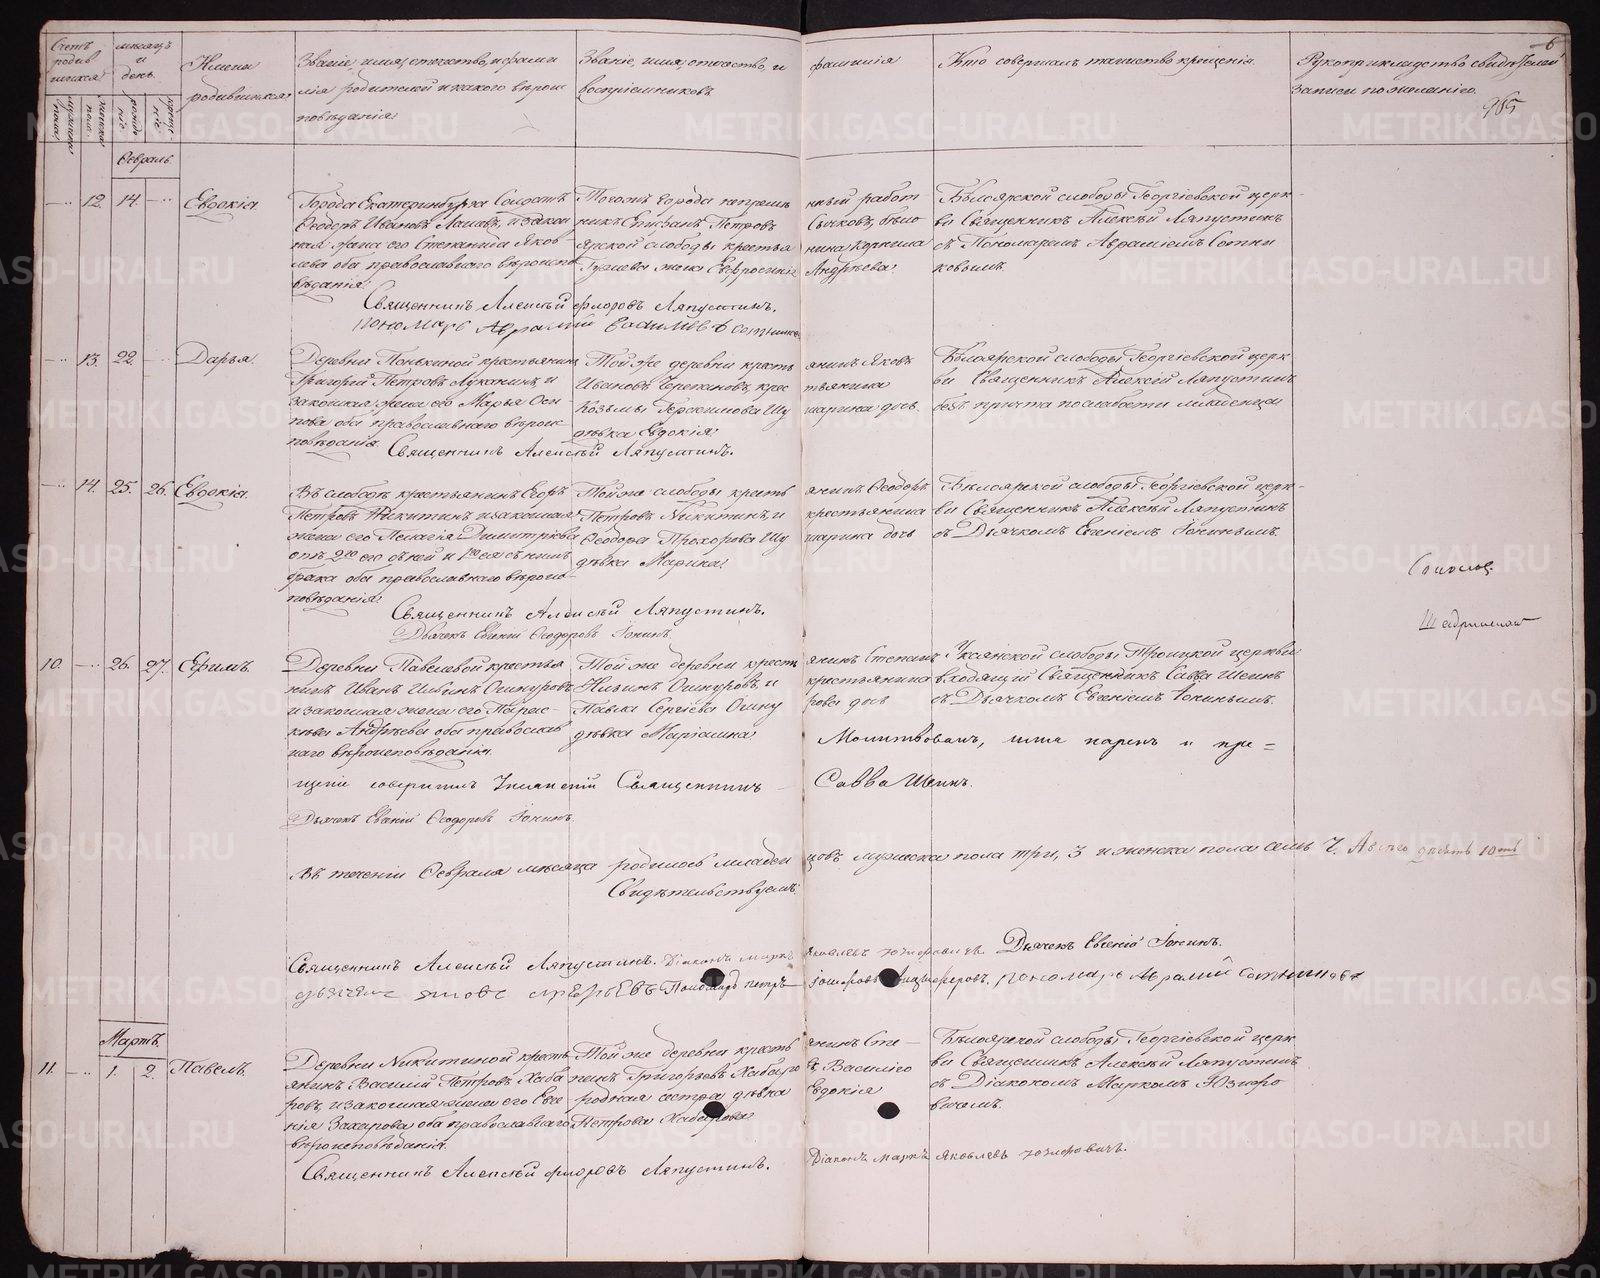 Счетъ родив шихся
мѣсяцъ и день.
Имена родившихся.
Званіе, имя, отчество, и фами
лія родителей и какого вѣрои
повѣданія.
Званіе, имя, отчество, и фамилія
воспріемниковъ
Кто совершалъ таинство крещенія.
Рукоприкладство свидѣтелей
записи по желанію.
6
965
Февраль.
12. 14. Евдокія.
Города Екатеринбурга Солдатъ
Ѳеодоръ Ивановъ и закон
ная жена его Степанида Яков
лева оба православнаго вѣроиспо
вѣданія.
Тогожъ города непремѣнный работ
никъ Петровъ Сычковъ, бѣло
ярской слободы крестья нина
Гуляева жена Евфросинія Андрѣева.
Бѣлоярской слободы Георгіевской церк
ви Священникъ Алексѣй Ляпустинъ
съ Пономаремъ Авраміемъ Сотни
ковымъ.
Священникъ Алексѣй Флоровъ Ляпустинъ.
Пономарь Аврамій Васильевъ Сотников
13. 22. Дарья.
Деревни крестьянинъ
Григорій Петровъ Луканинъ, и
законная жена его Марья Оси
пова оба православнаго вѣроис
повѣданія.
Той же деревни кресть янинъ Яковъ
Ивановъ Черепановъ, крес тьянина
Козьмы Герасимова Шу шарина дочь
дѣвка Евдокія.
Бѣлоярской слободы Георгіевской церк
ви Священникъ Алексѣй Ляпустинъ
безъ причта по слабости младенца
Священникъ Алексѣй Ляпустинъ.
14. 25. 26. Евдокія.
Въ слободѣ крестьянинъ Егоръ
Петровъ Никитинъ и законная
жена его Пелагія Димитріева
отъ 2го его съ ней и 1го ея съ нимъ
брака оба православнаго вѣроис
повѣданія.
Той же слободы кресть янинъ Ѳеодоръ
Петровъ Никитинъ, и крестьянина
Ѳеодора Прохорова Шу шарина дочь
дѣвка Марина.
Бѣлоярской слободы Георгіевской церк
ви Священникъ Алексѣй Ляпустинъ
съ Дьячкомъ Евгеніемъ Іонинымъ.
Священникъ Алексѣй Ляпустинъ.
Дьячекъ Евгеній Ѳеодоровъ Іонинъ.
10. 26. 27. Ефимъ.
Деревни Павлевой крестья
нинъ Иванъ Ильинъ Ошкуровъ
и законная жена его Парас
кева Андрѣева оба православ
наго вѣроисповѣданія.
Той же деревни кресть янинъ Степанъ
Ильинъ Ошкуровъ, и крестьянина
Павла Сергіева Ошку рова дочь
дѣвка Маріанна.
Уксянской слободы Троицкой церкви
входящій Священникъ Савва Шеинъ
съ Дьячкомъ Евгеніемъ Іонинымъ.
Молитвовалъ, имя нарекъ и кре=
щеніе совершилъ Уксянскій Священникъ Савва Шеинъ.
Дьячекъ Евгеній Ѳеодоровъ Іонинъ.
Въ теченіи Февраля мѣсяца родилось младен цовъ мужеска пола три, 3 и женска пола семь 7. А всего десять 10ть
Свидѣтельствуемъ:
Священникъ Алексѣй Ляпустинъ. Діаконъ Маркъ Яковлевъ Дьячекъ Евгеній Іонинъ.
Пономарь Петръ Пономарь Аврамій Сотниковъ
Мартъ.
11. 1. 2. Павелъ.
Деревни Никитиной кресть
янинъ Василій Петровъ Хаба
ровъ, и законная жена его Евге
нія Захарова оба православнаго
вѣроисповѣданія.
Той же деревни кресть янинъ Сте
Григорьевъ Хабаро въ Василіго
родная сестра дѣвка Евдокія
Петрова Хабарова.
Бѣлоярской слободы Георгіевской церк
ви Священникъ Алексѣй Ляпустинъ
съ Діакономъ Маркомъ Юзефо
вичемъ.
Священникъ Алексѣй Флоровъ Ляпустинъ.
Діаконъ Маркъ Яковлевъ Юзефовичъ.
METRIKI.GASO-URAL.RU